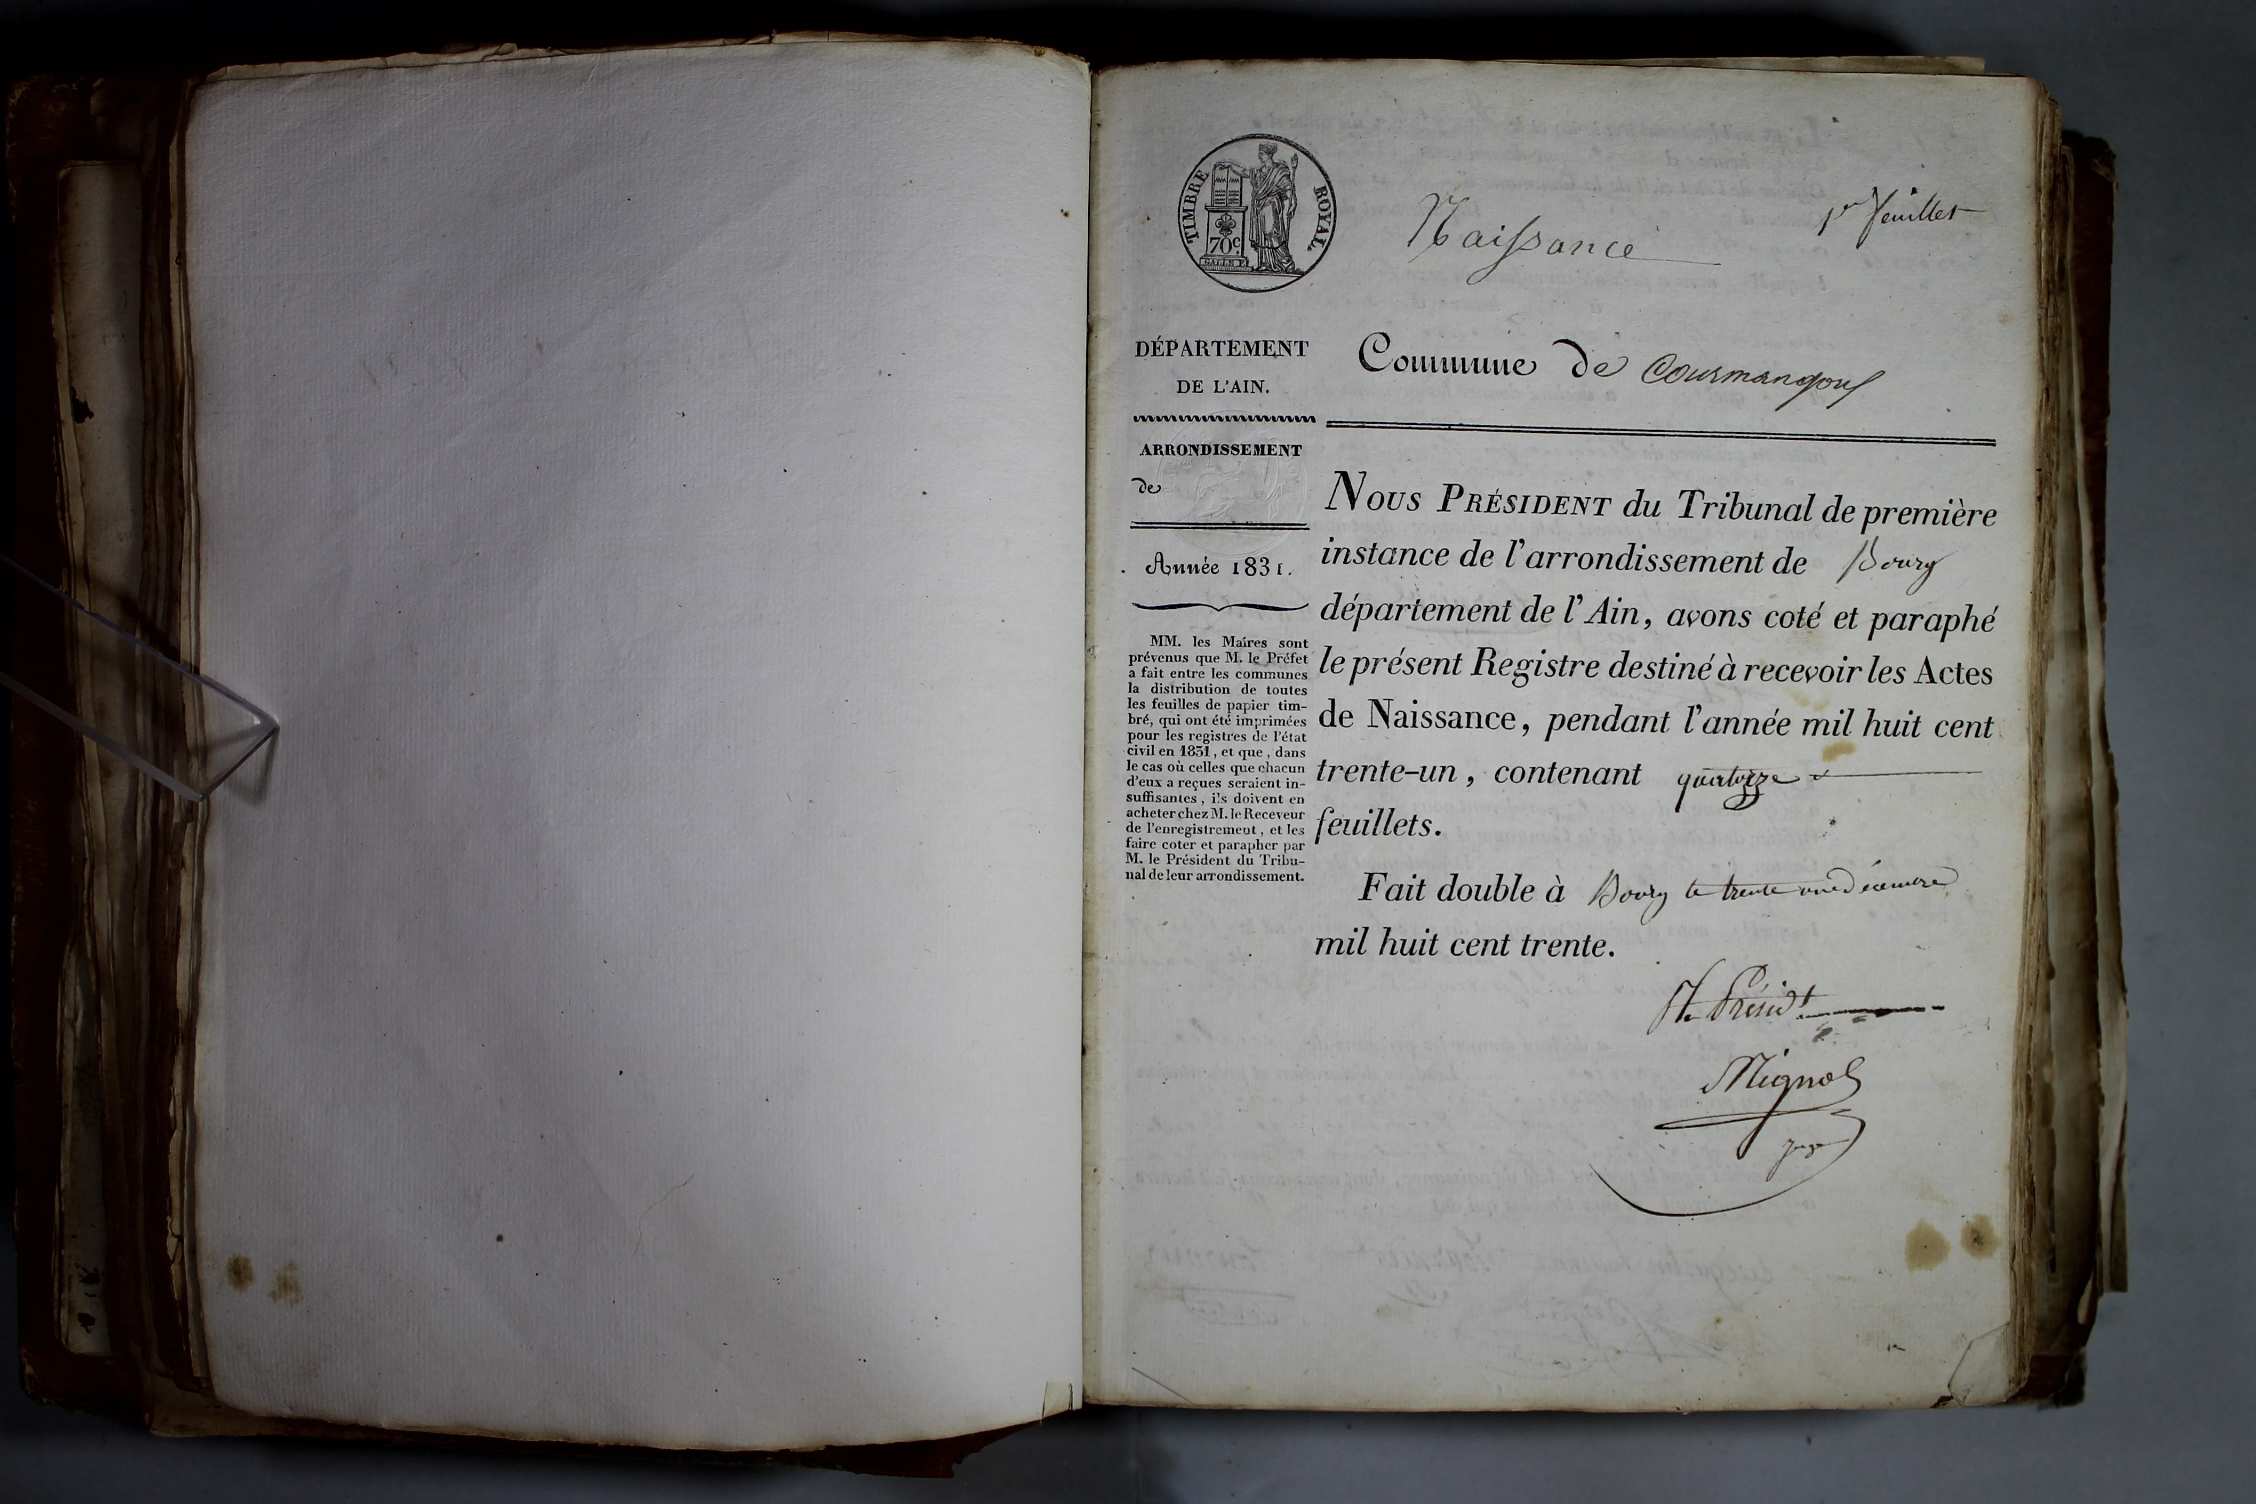 TIMBRE ROYAL.
70c.
Naissance
1er feuillet
DÉPARTEMENT
DE L'AIN.
Commune de Courmangoux
ARRONDISSEMENT
de
Année 1831.
MM. les Maires sont
prévenus que M. le Préfet
a fait entre les communes
la distribution de toutes
les feuilles de papier tim-
bré, qui ont été imprimées
pour les registres de l'état
civil en 1831, et que, dans
le cas où celles que chacun
d'eux a reçues seraient in-
suffisantes, ils doivent en
acheter chez M. le Receveur
de l'enregistrement, et les
faire coter et parapher par
M. le Président du Tribu-
nal de leur arrondissement.
NOUS PRÉSIDENT du Tribunal de première
instance de l'arrondissement de Bourg
département de l'Ain, avons coté et paraphé
le présent Registre destiné à recevoir les Actes
de Naissance, pendant l'année mil huit cent
trente-un, contenant quatorze
feuillets.
Fait double à Bourg le trente un décembre
mil huit cent trente.
Présidt
Mignot
juge